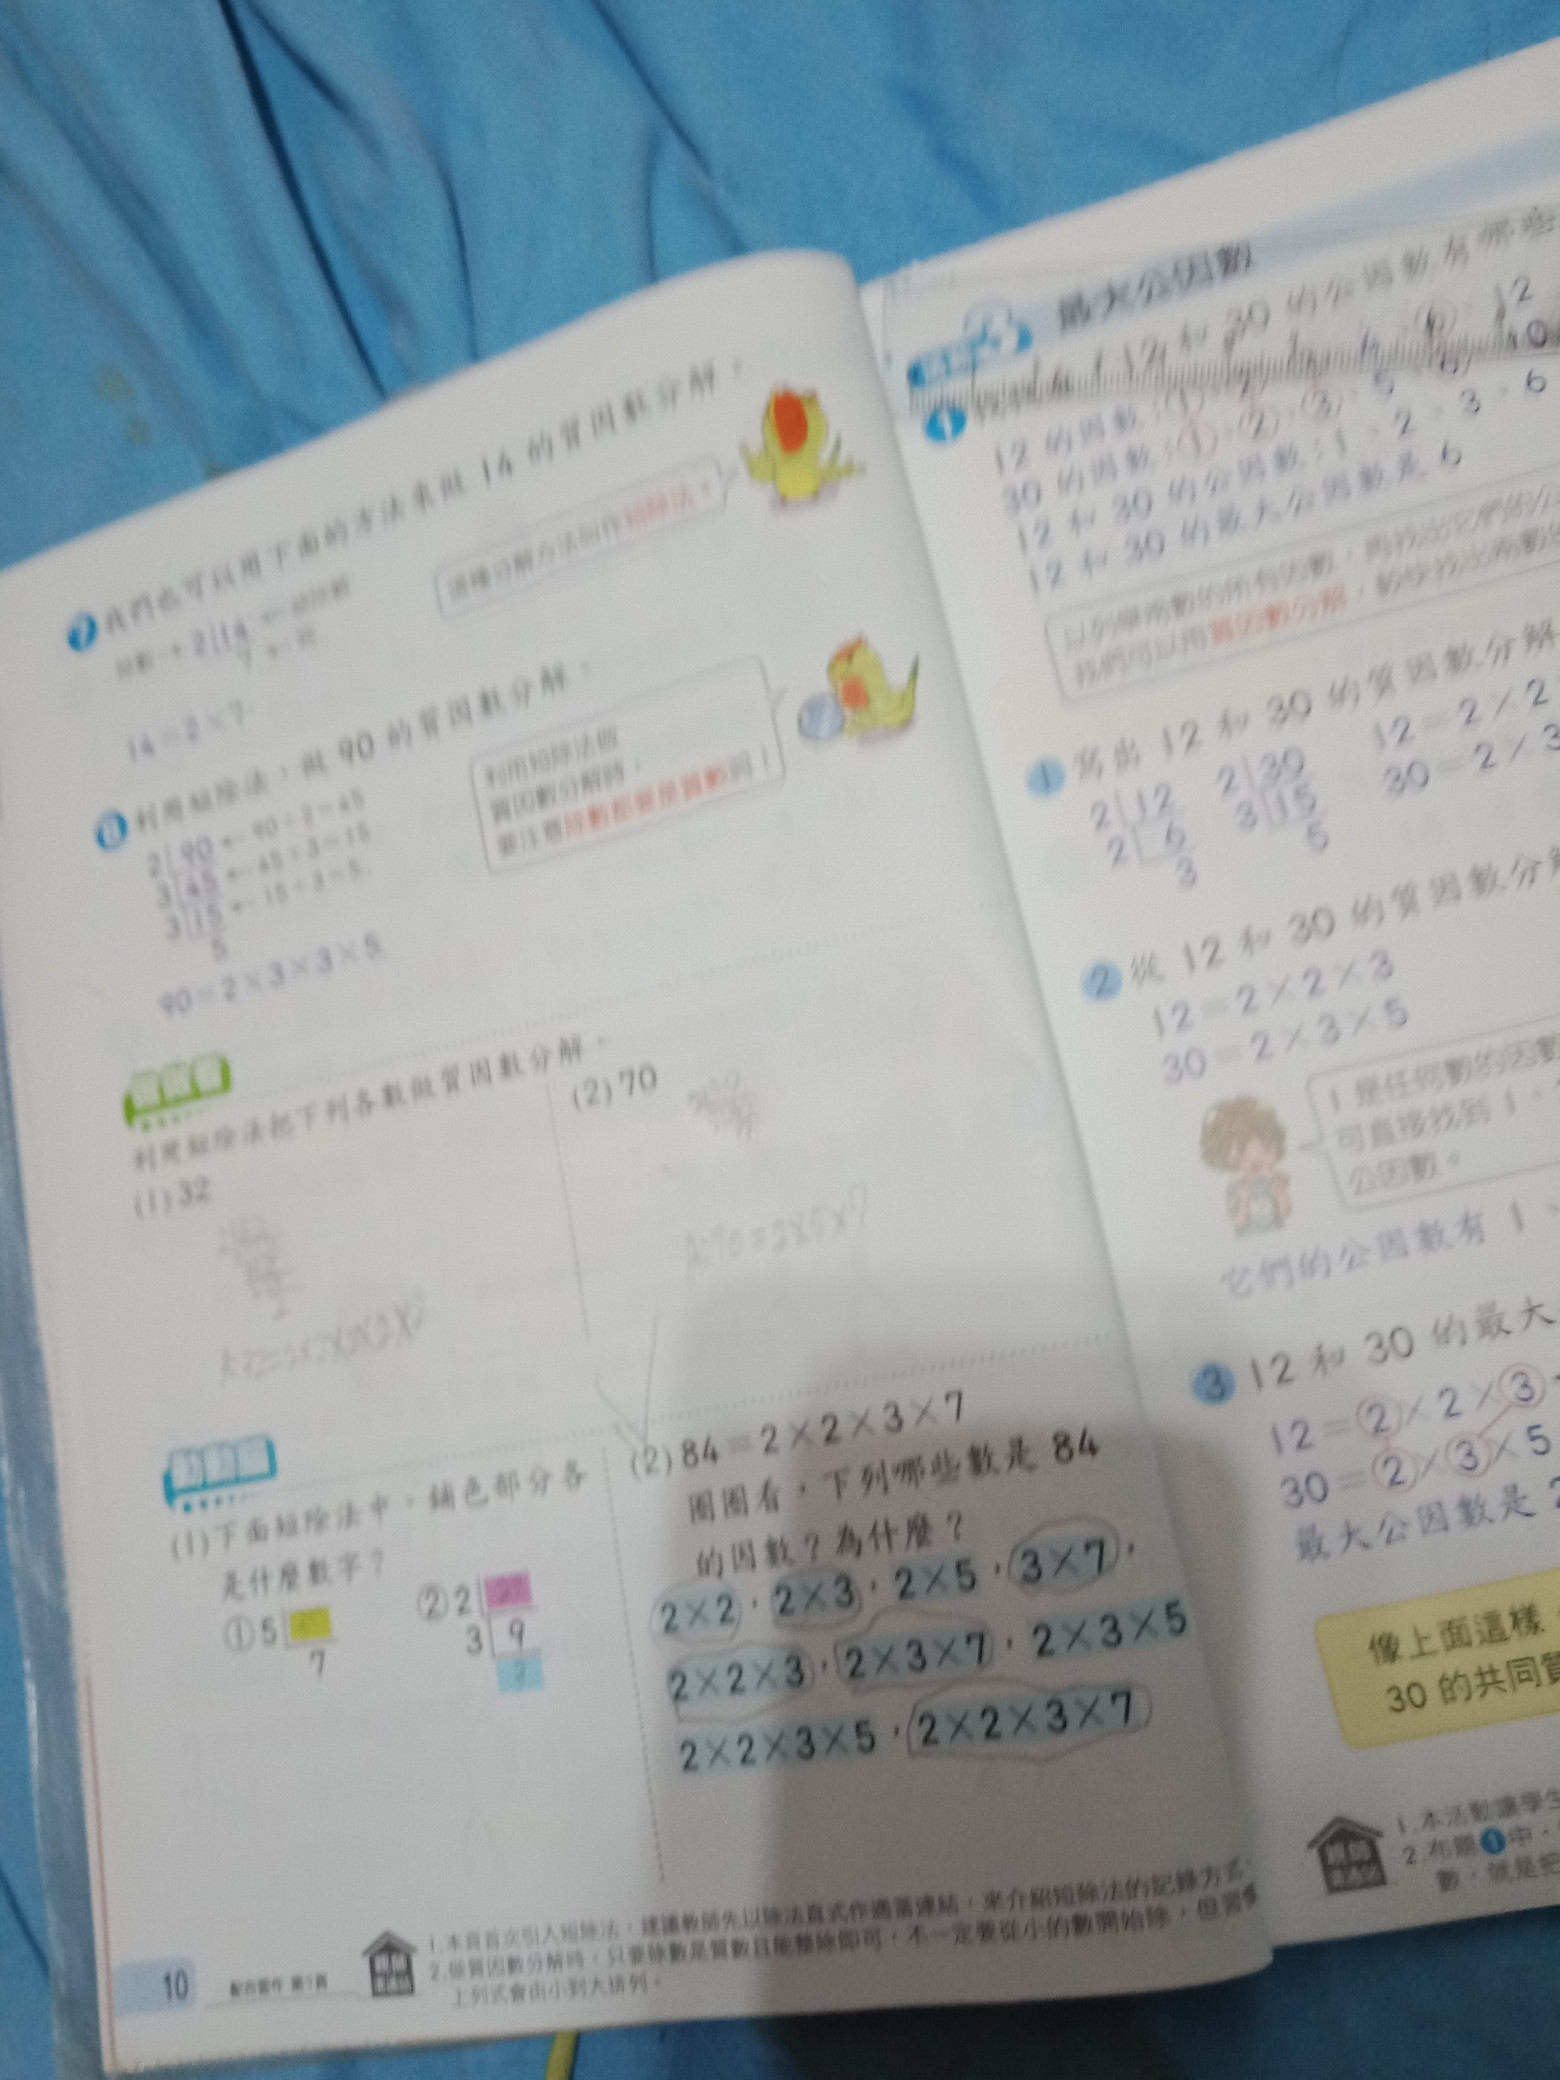 7 我們也可以用下面的方法來做 14 的質因數分解。
2 14
7
這種分解方法叫作短除法。
14=2×7
8 利用短除法,做 90 的質因數分解。
2 90 ← 90÷2=45
3 45 ← 45÷3=15
3 15 ← 15÷3=5
5
利用短除法做
質因數分解時,
要注意除數都要是質數喔!
90=2×3×3×5
利用短除法把下列各數做質因數分解。
(1) 32
(2) 70
A:70=2×5×7
(1) 下面短除法中,鋪色部分各
是什麼數字?
① 5
7
② 2
3 9
(2) 84=2×2×3×7
圈圈看,下列哪些數是 84
的因數?為什麼?
2×2、2×3、2×5、3×7、
2×2×3、2×3×7、2×3×5
2×2×3×5、2×2×3×7
1.本頁首次引入短除法,建議教師先以除法直式作適當連結,來介紹短除法的記錄方式
2.做質因數分解時,只要除數是質數且能整除即可,不一定要從小的數開始除,但習
上列式會由小到大排列。
10 配合習作 第7頁
最大公因數
1 12 和 30 的公因數有哪些
12 的因數:1、2
30 的因數:1、2、3、5、6
12 和 30 的公因數:1、2、3、6
12 和 30 的最大公因數是 6
以列舉兩數的所有因數,再找出它們的公
我們可以用質因數分解,
1 寫出 12 和 30 的質因數分解
2 12
2 6
3
2 30
3 15
5
12=2×2
30=2×3
2 從 12 和 30 的質因數分
12=2×2×3
30=2×3×5
1 是任何數的因數
可直接找到 1、
公因數。
它們的公因數有 1、
3 12 和 30 的最大
12=2×2×3
30=2×3×5
最大公因數是 2
像上面這樣
30 的共同質
1.本活動讓學生
2.布題1中,
數,就是把